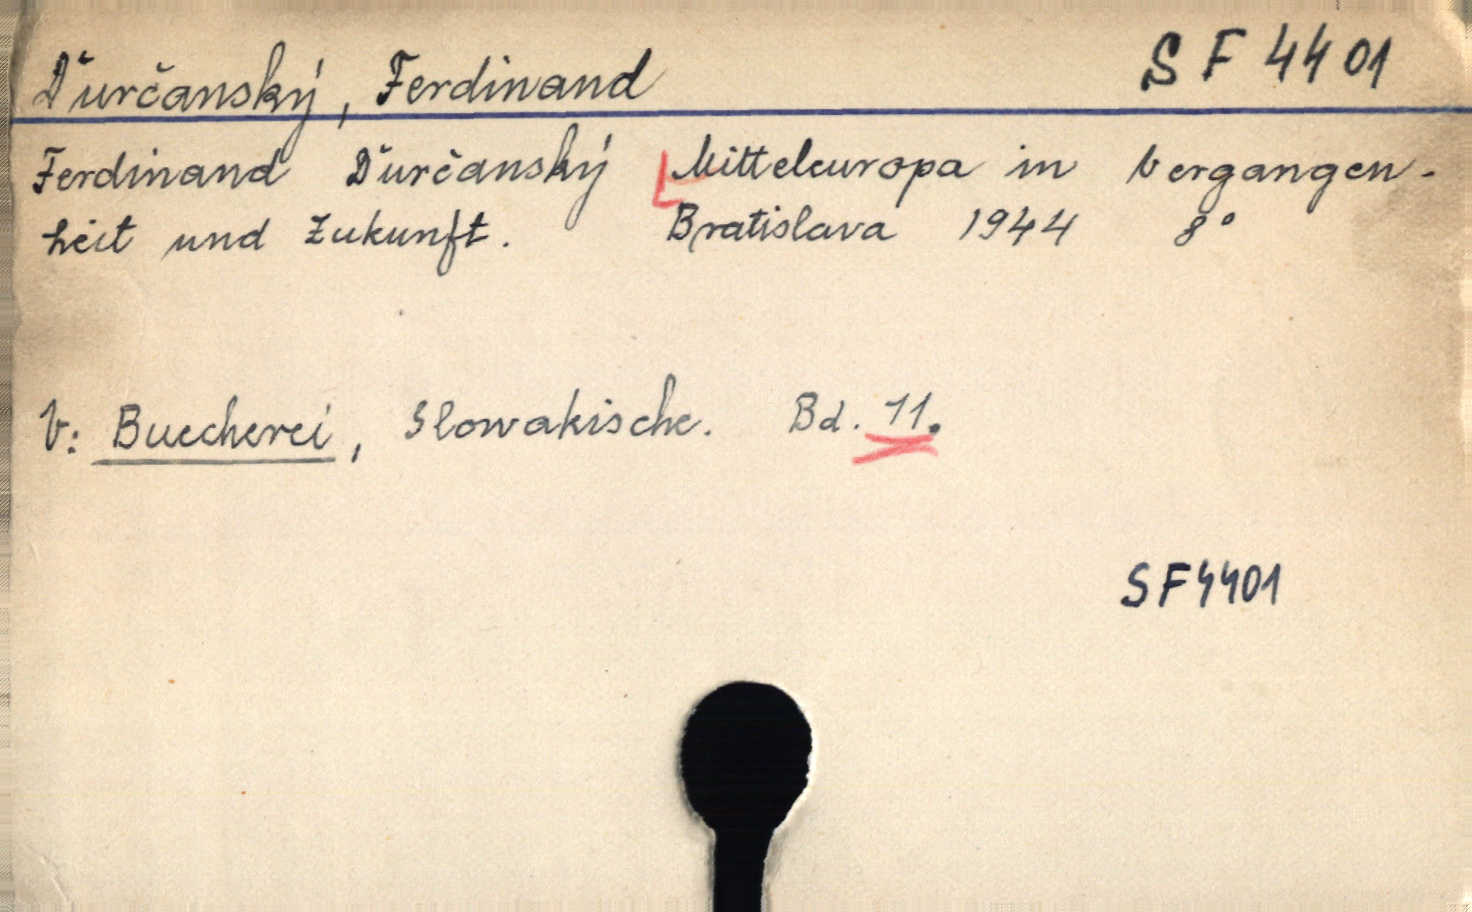 Ďurčanský, Ferdinand SF 4401
Ferdinand Ďurčanský Mitteleuropa in Vergangen-
heit und Zukunft. Bratislava 1944 8°
V: Buecherei, Slowakische. Bd. 11.
SF4401